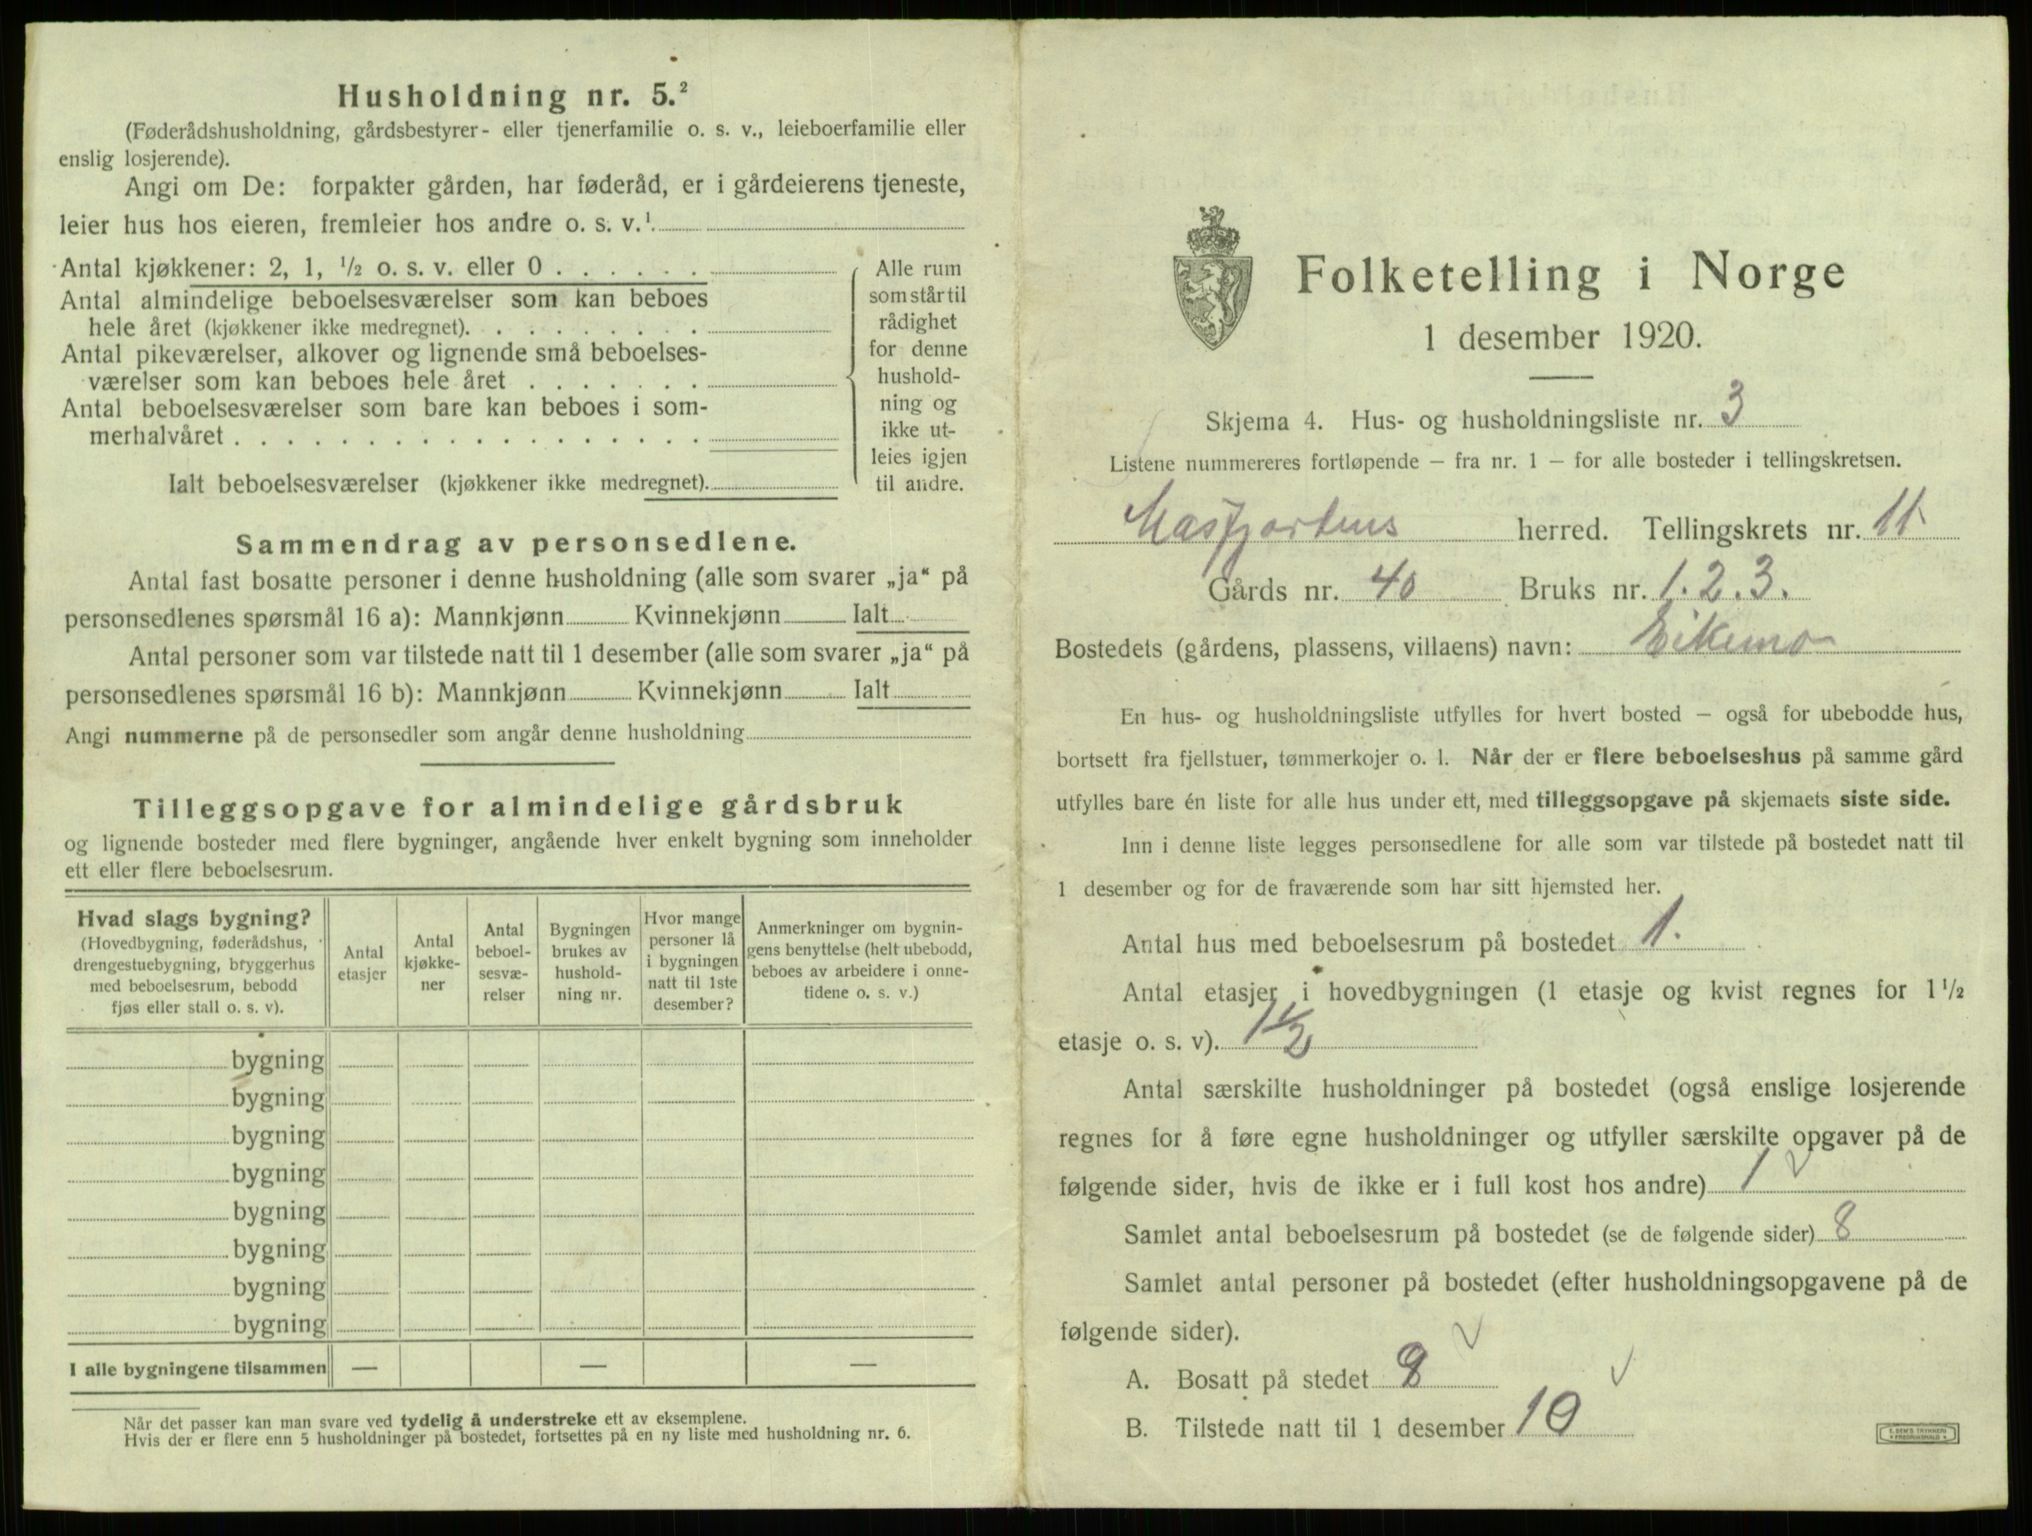 Husholdning nr. 5.²
(Føderådshusholdning, gårdsbestyrer- eller tjenerfamilie o. s. v., leieboerfamilie eller
enslig losjerende).
Angi om De: forpakter gården, har føderåd, er i gårdeierens tjeneste,
leier hus hos eieren, fremleier hos andre o. s. v.¹
Antal kjøkkener: 2, 1, ½ o. s. v. eller 0
Antal almindelige beboelsesværelser som kan beboes
hele året (kjøkkener ikke medregnet)
Antal pikeværelser, alkover og lignende små beboelses-
værelser som kan beboes hele året
Antal beboelsesværelser som bare kan beboes i som-
merhalvåret
Ialt beboelsesværelser (kjøkkener ikke medregnet)
Alle rum
som står til
rådighet
for denne
hushold-
ning og
ikke ut-
leies igjen
til andre.
Sammendrag av personsedlene.
Antal fast bosatte personer i denne husholdning (alle som svarer „ja“ på
personsedlenes spørsmål 16 a): Mannkjønn Kvinnekjønn Ialt
Antal personer som var tilstede natt til 1 desember (alle som svarer „ja“ på
personsedlenes spørsmål 16 b): Mannkjønn Kvinnekjønn Ialt
Angi nummerne på de personsedler som angår denne husholdning
Tilleggsopgave for almindelige gårdsbruk
og lignende bosteder med flere bygninger, angående hver enkelt bygning som inneholder
ett eller flere beboelsesrum.
Hvad slags bygning?
(Hovedbygning, føderådshus,
drengestuebygning, bryggerhus
med beboelsesrum, bebodd
fjøs eller stall o. s. v).
Antal
etasjer
Antal
kjøkke-
ner
Antal
beboel-
sesvæ-
relser
Bygningen
brukes av
hushold-
ning nr.
Hvor mange
personer lå
i bygningen
natt til 1ste
desember?
Anmerkninger om bygnin-
gens benyttelse (helt ubebodd,
beboes av arbeidere i onne-
tidene o. s. v.)
bygning
bygning
bygning
bygning
bygning
bygning
bygning
bygning
I alle bygningene tilsammen — — —
Når det passer kan man svare ved tydelig å understreke ett av eksemplene.
Hvis der er flere enn 5 husholdninger på bostedet, fortsettes på en ny liste med husholdning nr. 6.
Folketelling i Norge
1 desember 1920.
Skjema 4. Hus- og husholdningsliste nr. 3
Listene nummereres fortløpende – fra nr. 1 – for alle bosteder i tellingskretsen.
Masfjorden herred. Tellingskrets nr. 11
Gårds nr. 40 Bruks nr. 1. 2. 3.
Bostedets (gårdens, plassens, villaens) navn: Eikemo
En hus- og husholdningsliste utfylles for hvert bosted – også for ubebodde hus,
bortsett fra fjellstuer, tømmerkojer o. l. Når der er flere beboelseshus på samme gård
utfylles bare én liste for alle hus under ett, med tilleggsopgave på skjemaets siste side.
Inn i denne liste legges personsedlene for alle som var tilstede på bostedet natt til
1 desember og for de fraværende som har sitt hjemsted her.
Antal hus med beboelsesrum på bostedet 1.
Antal etasjer i hovedbygningen (1 etasje og kvist regnes for 1½
etasje o. s. v). 1½
Antal særskilte husholdninger på bostedet (også enslige losjerende
regnes for å føre egne husholdninger og utfyller særskilte opgaver på de
følgende sider, hvis de ikke er i full kost hos andre) 1
Samlet antal beboelsesrum på bostedet (se de følgende sider) 8
Samlet antal personer på bostedet (efter husholdningsopgavene på de
følgende sider).
A. Bosatt på stedet 8
B. Tilstede natt til 1 desember 10